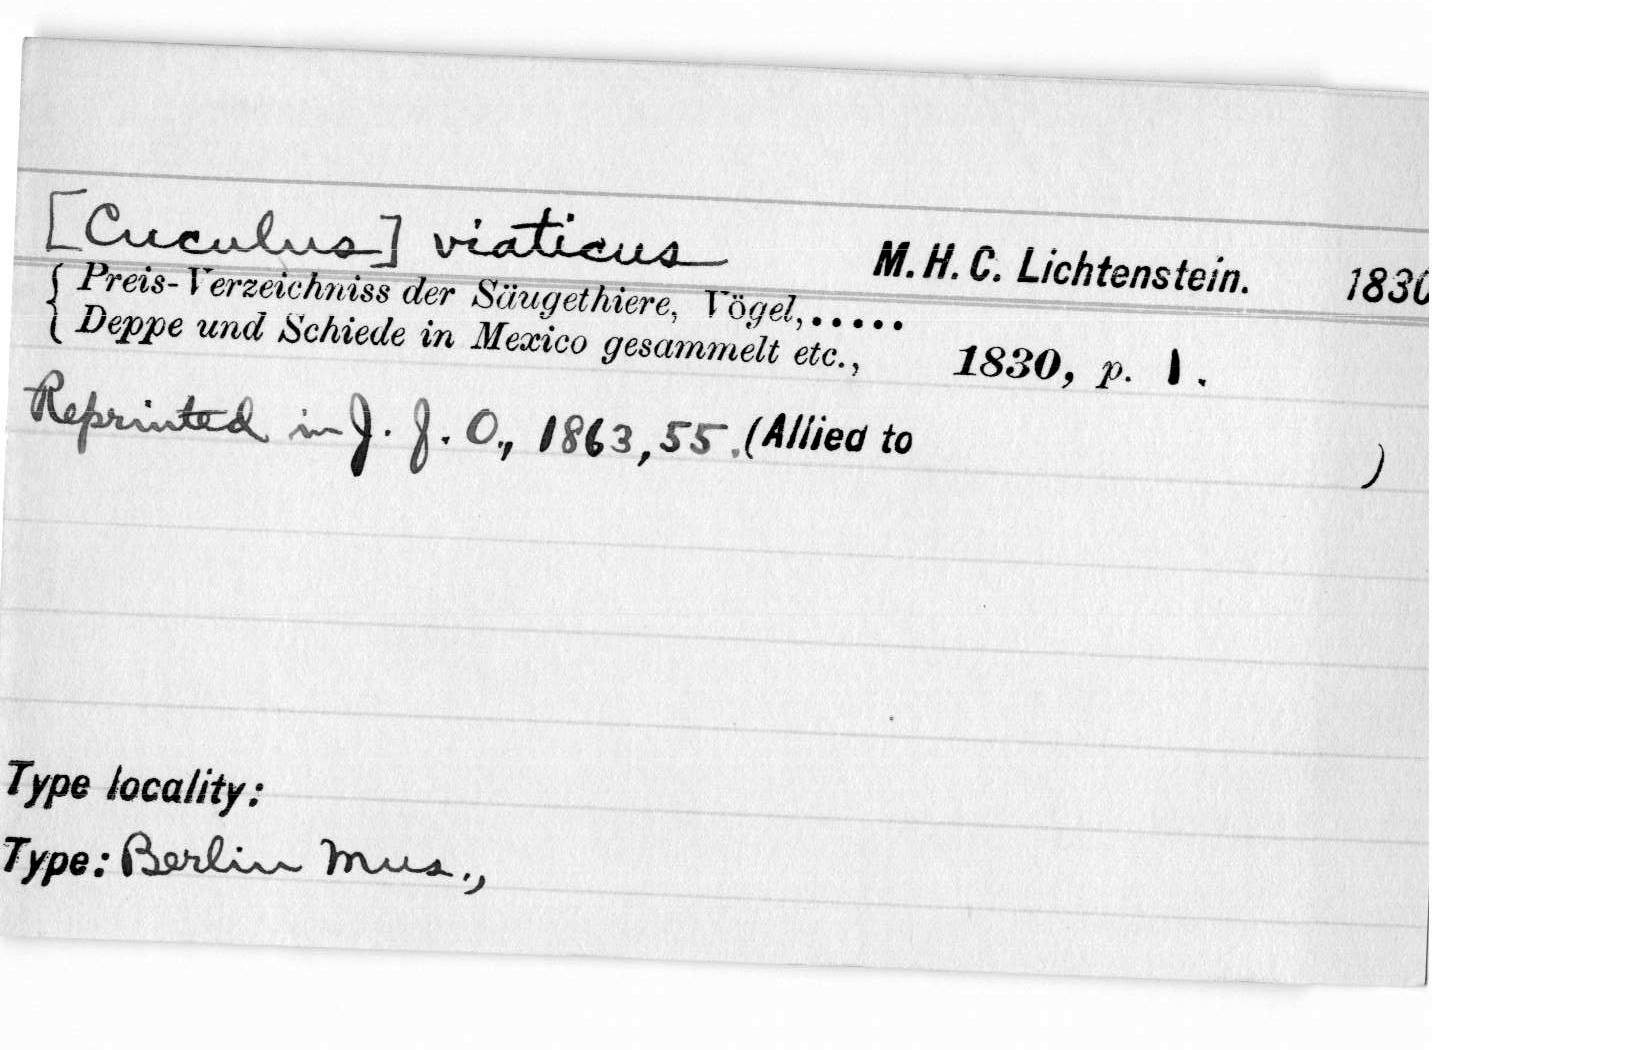 [Cuculus] viaticus M. H. C. Lichtenstein. 1830
{ Preis-Verzeichniss der Säugethiere, Vögel,.....
Deppe und Schiede in Mexico gesammelt etc., 1830, p. 1.
Reprinted in J. f. O., 1863, 55. (Allied to )
Type locality:
Type: Berlin Mus.,